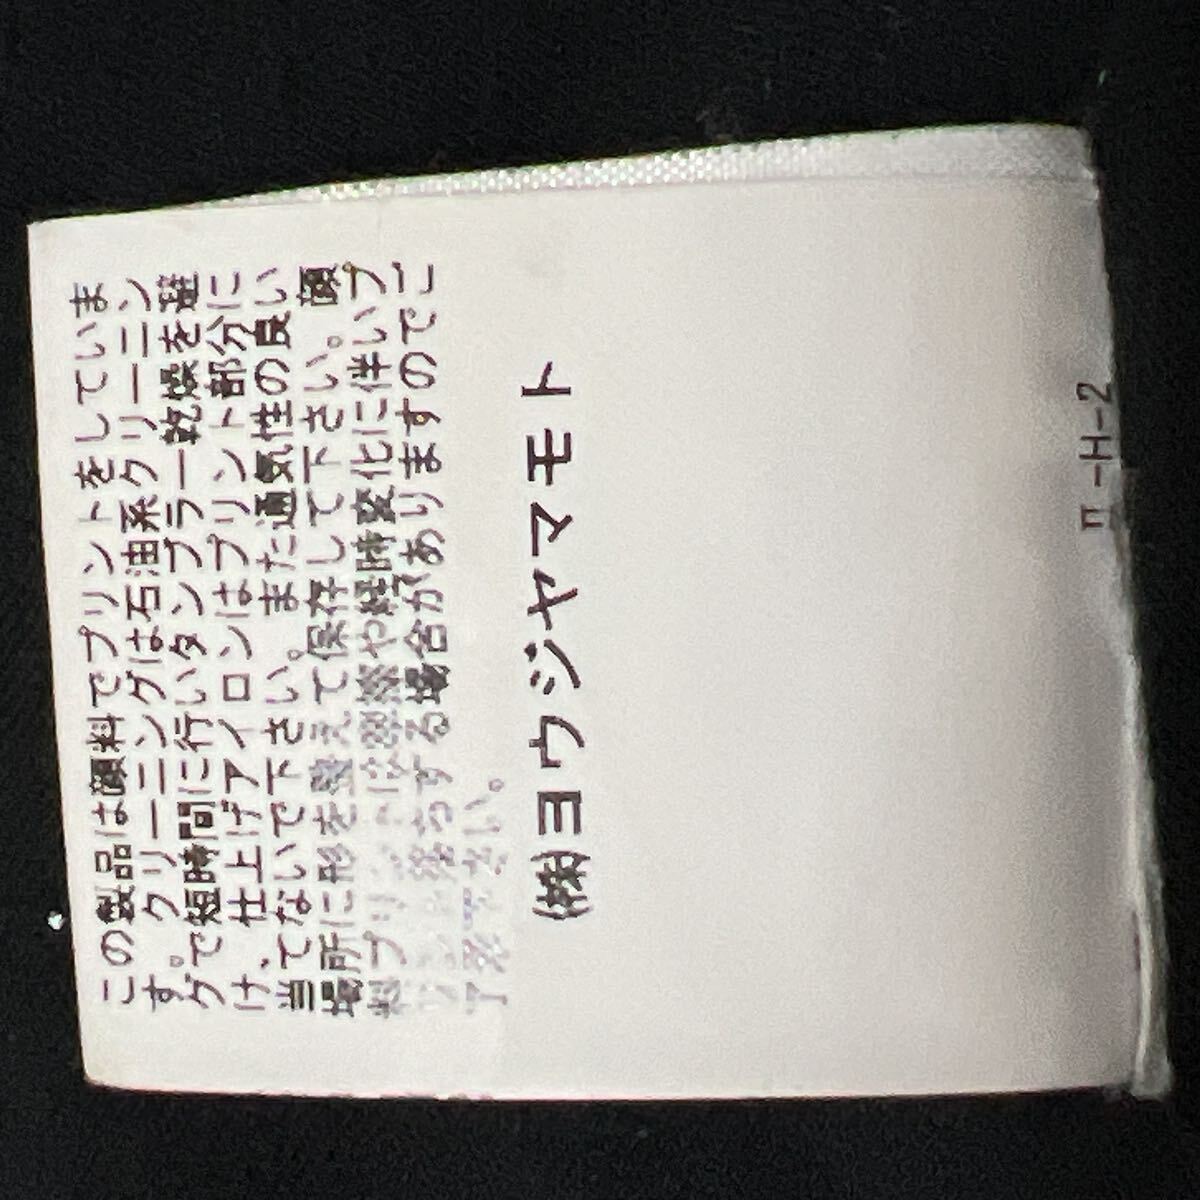 この製品は顔料でプリントをしていま
す。クリーニングは石油系クリーニン
グで短時間に行いタンブラー乾燥を避
け、仕上げアイロンはプリント部分に
当てないで下さい。また通気性の良い
場所に形を整えて保存して下さい。顔
料プリントは摩擦や経時変化に伴いプ
リント 落ちする場合がありますのでご
了承下さい。
(株)ヨウジヤマモト
II-H-2